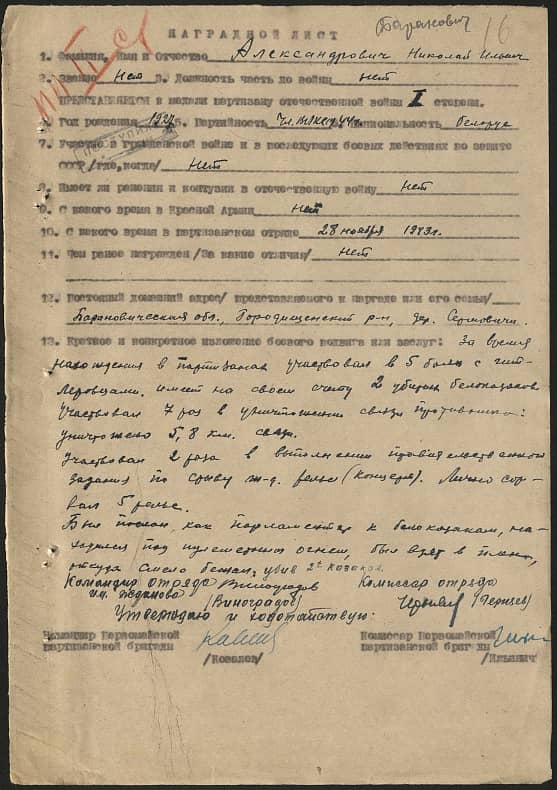 Баранович 16
НАГРАДНОЙ ЛИСТ
1. Фамилия, Имя и Отчество Александрович Николай Ильич
2. Звание Нет 3. Должность часть до войны нет
ПРЕДСТАВЛЯЕТСЯ к медали партизану отечественной войны I степени.
Год рождения 1927 5. Партийность чл. ВЛКСМ 44г. Национальность белорус
7. Участие в гражданской войне и в последующих боевых действиях по защите
СССР /где, когда/ Нет
Имеет ли ранения и контузии в отечественную войну Нет
9. С какого время в Красной Армии Нет
10. С какого время в партизанском отряде 28 ноября 1943г.
11. Чем ранее награжден /За какие отличия/ Нет
12. Постоянный домашний адрес/ представляемого к награде или его семьи/
Барановическая обл., Городищенский р-н, дер.
13. Краткое и конкретное изложение боевого подвига или заслуг: За время
нахождения в партизанах участвовал в 5 боях с гит-
леровцами, имеет на своем счету 2 убитых белоказаков
Участвовал 7 раз в уничтожении связи противника:
уничтожено 5,8 км. связи.
Участвовал 2 раза в выполнении правительственного
задания по срыву ж-д. рельс (концерт). Лично сор-
вал 5 рельс.
Был послан, как парламентер к белоказакам, на-
ходился под пулеметным огнем, был взят в плен,
откуда смело бежал, убив 2х казаков.
Командир отряда Виноградов Комиссар отряда
им. Жданова (Виноградов)
Утверждаю и ходатайствую:
Командир Первомайской Комиссар Первомайской
партизанской бригады партизанской бригады
/Ковалев/ /Ильвич/